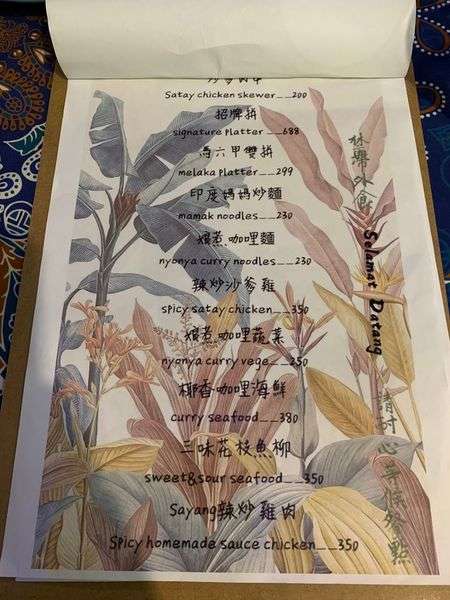 Satay chicken skewer__200
招牌拼
signature platter__688
馬六甲雙拼
melaka platter__299
印度媽媽炒麵
mamak noodles__230
娘惹咖哩麵
nyonya curry noodles__230
辣炒沙爹雞
spicy satay chicken__350
娘惹咖哩蔬菜
nyonya curry vege__250
椰香咖哩海鮮
curry seafood__380
三味花枝魚柳
sweet&sour seafood__350
Sayang辣炒雞肉
Spicy homemade sauce chicken__350
Selamat Datang